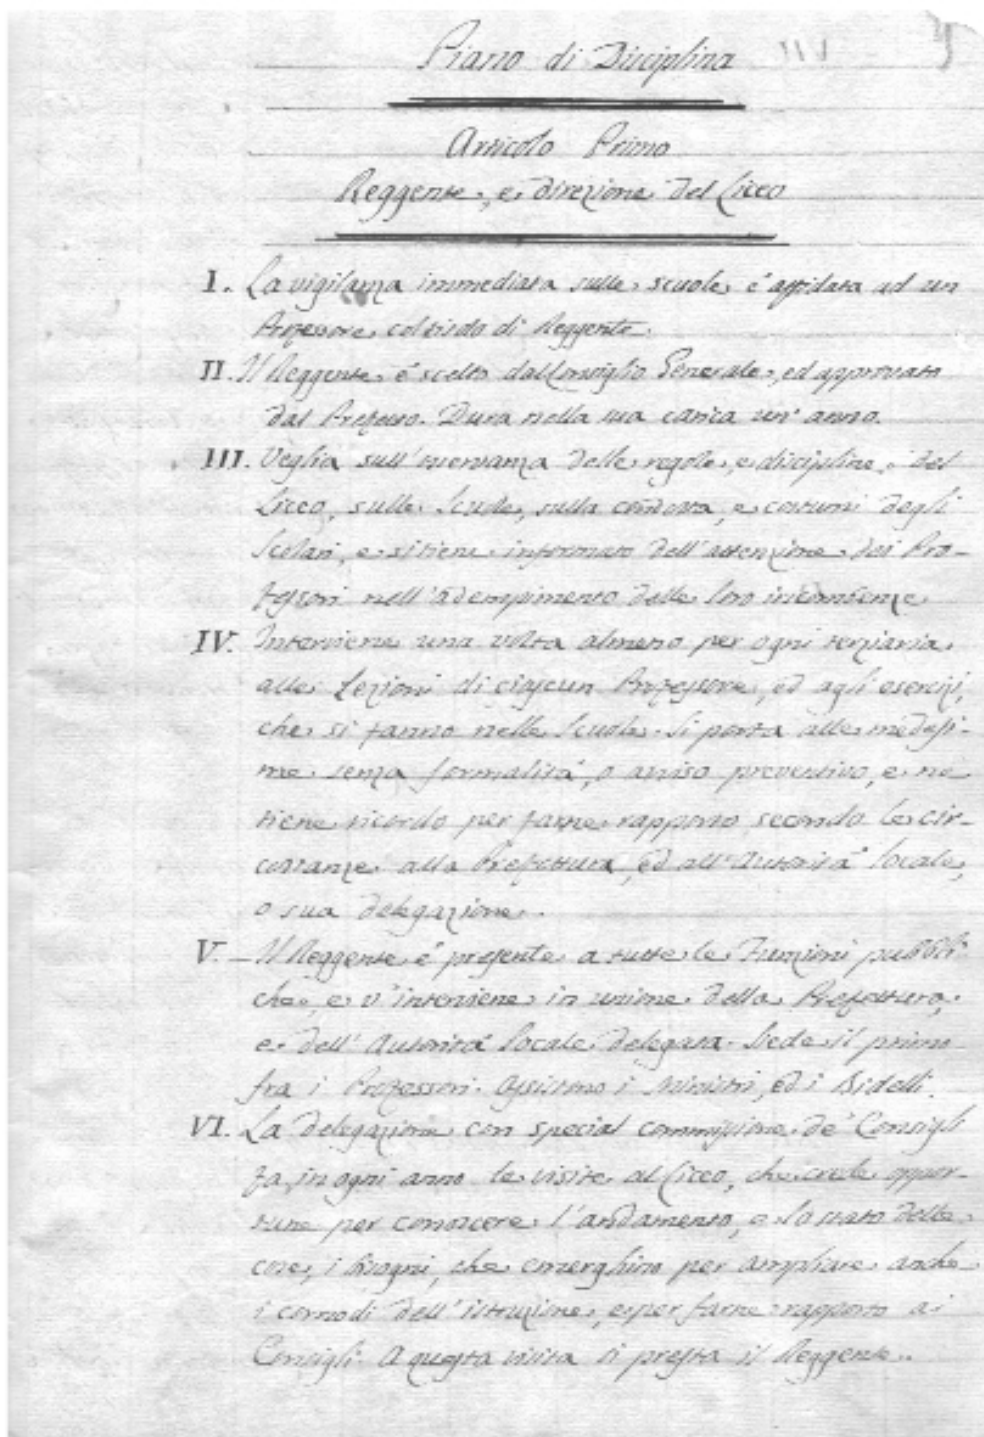 Piano di Disciplina
Articolo Primo
Reggente, e direzione del Liceo
I. La vigilanza immediata sulle scuole è affidata ad un
Professore col titolo di Reggente.
II. Il Reggente è scelto dal Consiglio Generale, ed approvato
dal Prefetto. Dura nella sua carica un' anno.
III. Veglia sull'osservanza delle regole, e discipline del
Liceo, sulle Scuole, sulla condotta, e costumi degli
Scolari, e si tiene informato dell'attenzione dei Pro-
fessori nell'adempimento delle loro incombenze
IV. Interviene una volta almeno per ogni terziaria
alle Lezioni di ciascun Professore, ed agli esercizj,
che si fanno nelle Scuole. Si porta alle medesi-
me senza formalità, o avviso preventivo, e ne
tiene ricordo per farne rapporto secondo le cir-
costanze alla Prefettura, ed all'Autorità locale,
o sua delegazione.
V. Il Reggente è presente a tutte le Funzioni pubbli-
che, e v'interviene in unione della Prefettura,
e dell'Autorità locale delegata. Siede il primo
fra i Professori. Assistono i Ministri, ed i Bidelli.
VI. La delegazione con special commissione de' Consigli
fa in ogni anno le visite al Liceo, che crede oppor-
tune per conoscere l'andamento, e lo stato delle
cose, i bisogni, che emerghino per ampliare anche
i comodi dell'istruzione, e per farne rapporto ai
Consigli. A questa visita si presta il Reggente.